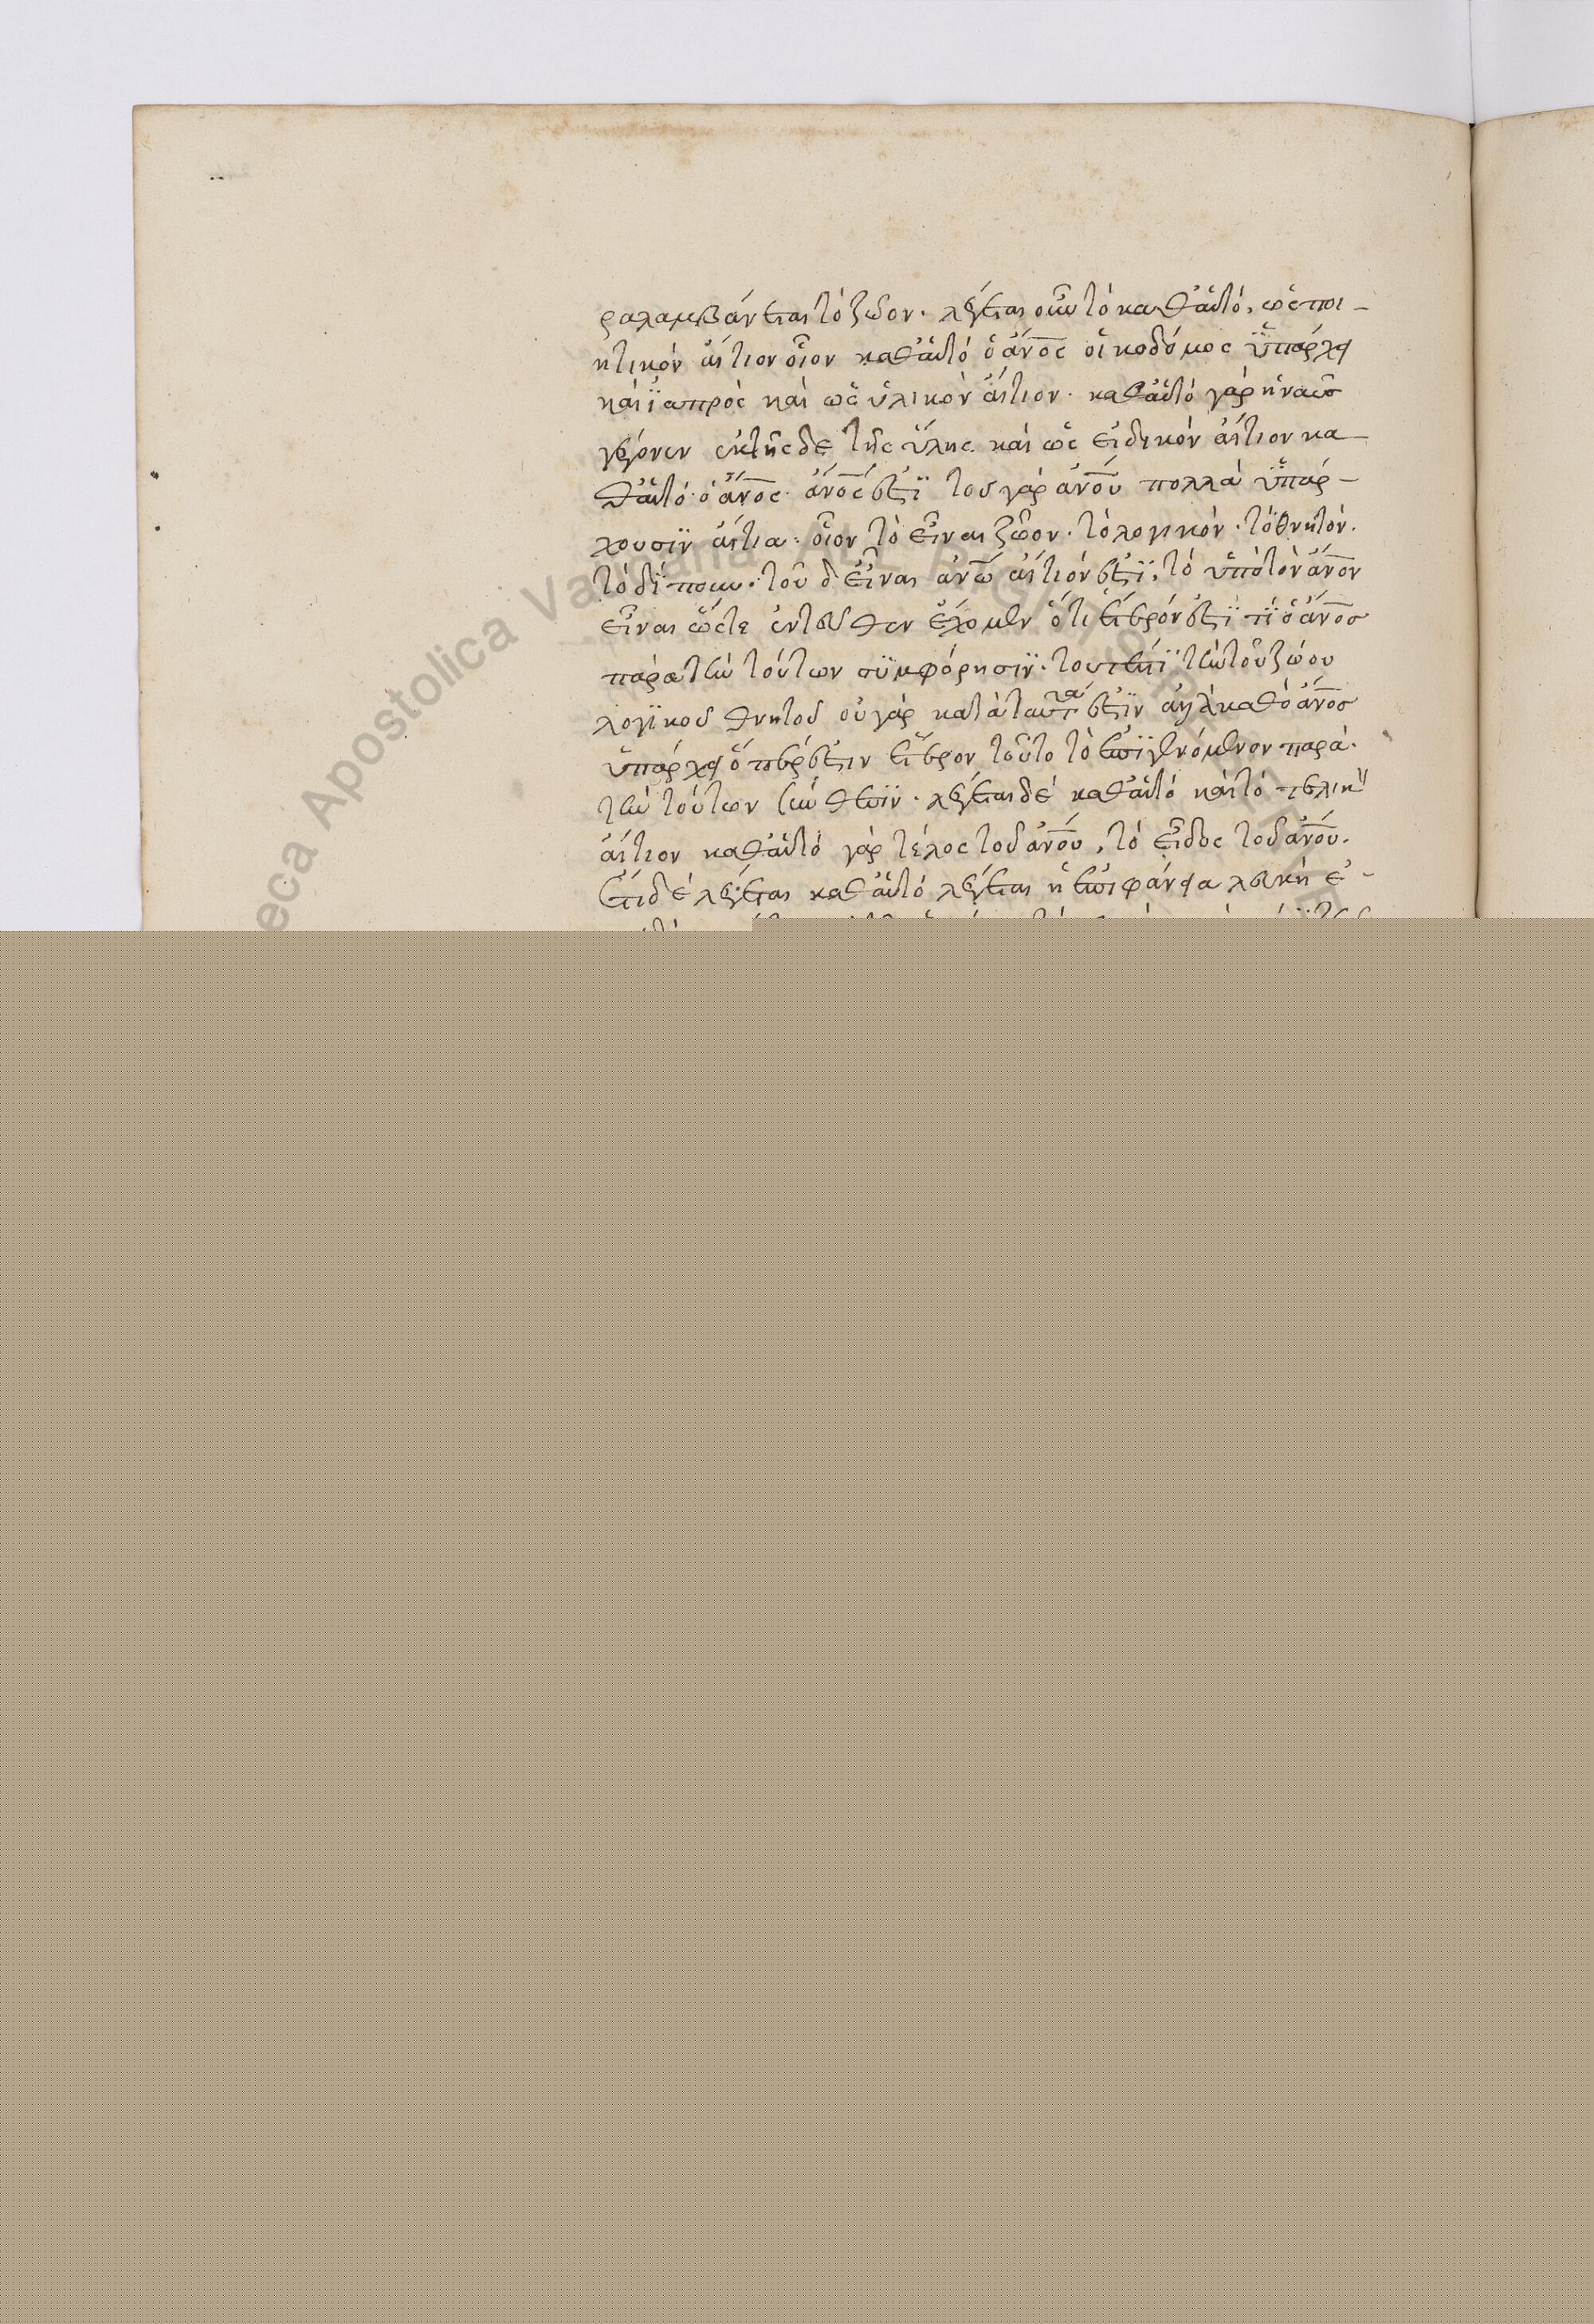 ραλαμβάνεται τὸ ζῶον. λέγεται οὖν τὸ καθ' αὑτό, ὡς ποι-
ητικὸν αἴτιον οἷον καθ' αὑτὸ ὁ ἄνος οἰκοδόμος ὑπάρχει
καὶ ἰατρὸς καὶ ὡς ὑλικὸν αἴτιον. καθ' αὑτὸ γὰρ ἡ ναῦς
γέγονεν ἐκ τῆσδε τῆς ὕλης. καὶ ὡς εἰδικὸν αἴτιον κα-
θ' αὑτό· ὁ ἄνος ἄνος ἐστί τοῦ γὰρ ἀνου πολλὰ ὑπάρ-
χουσιν αἴτια· οἷον τὸ εἶναι ζῶον· τὸ λογικόν· τὸ θνητόν.
τὸ δίπουν· τοῦ δ' εἶναι ανω αἴτιόν ἐστι, τὸ τὸν ἄνον
εἶναι ὥστε ἐντεῦθεν ἔχομεν ὅτι ἕτερόν ἐστί τι ὁ ἄνος
παρὰ τὴν τούτων συμφόρησιν· τουτέστι τὴν τοῦ ζώου
λογικοῦ θνητοῦ οὐ γὰρ κατὰ ταῦτά ἐστιν ἀλλὰ καθὸ ἄνος
ὑπάρχει ὅπερ ἐστὶν ἕτερον τοῦτο τὸ ἐπιγενόμενον παρὰ
τὴν τούτων σύνθεσιν. λέγεται δὲ καθ' αὑτὸ καὶ τὸ τελικὸν
αἴτιον καθ' αὑτὸ γὰρ τέλος τοῦ ἀνου, τὸ εἶδος τοῦ ἀνου.
ἔτι δὲ λέγεται καθ' αὑτὸ λέγεται ἡ ἐπιφάνεια λευκὴ ἐ-